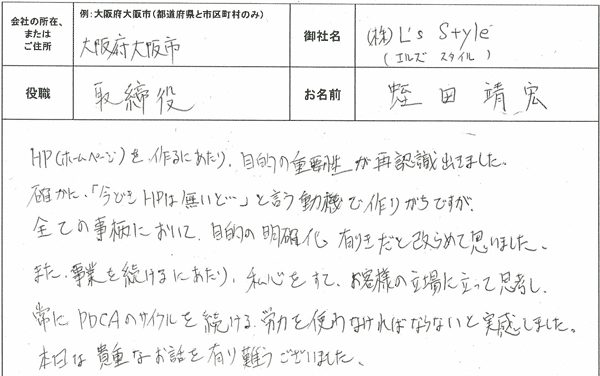 会社の所在、
または
ご住所
例：大阪府大阪市（都道府県と市区町村のみ）
大阪府大阪市
御社名
(株) L's Style
(エルズ スタイル)
役職
取締役
お名前
蛭田 靖宏
HP(ホームページ)を作るにあたり、目的の重要性が再認識出きました。
確かに、「今どきHPは無いと…」と言う動機で作りがちですが、
全ての事柄において、目的の明確化有りきだと改らめて思いました。
また、事業を続けるにあたり、私心をすて、お客様の立場に立って思考し、
常にPDCAのサイクルを続ける労力を使わなければならないと実感しました。
本日は貴重なお話を有り難うございました。